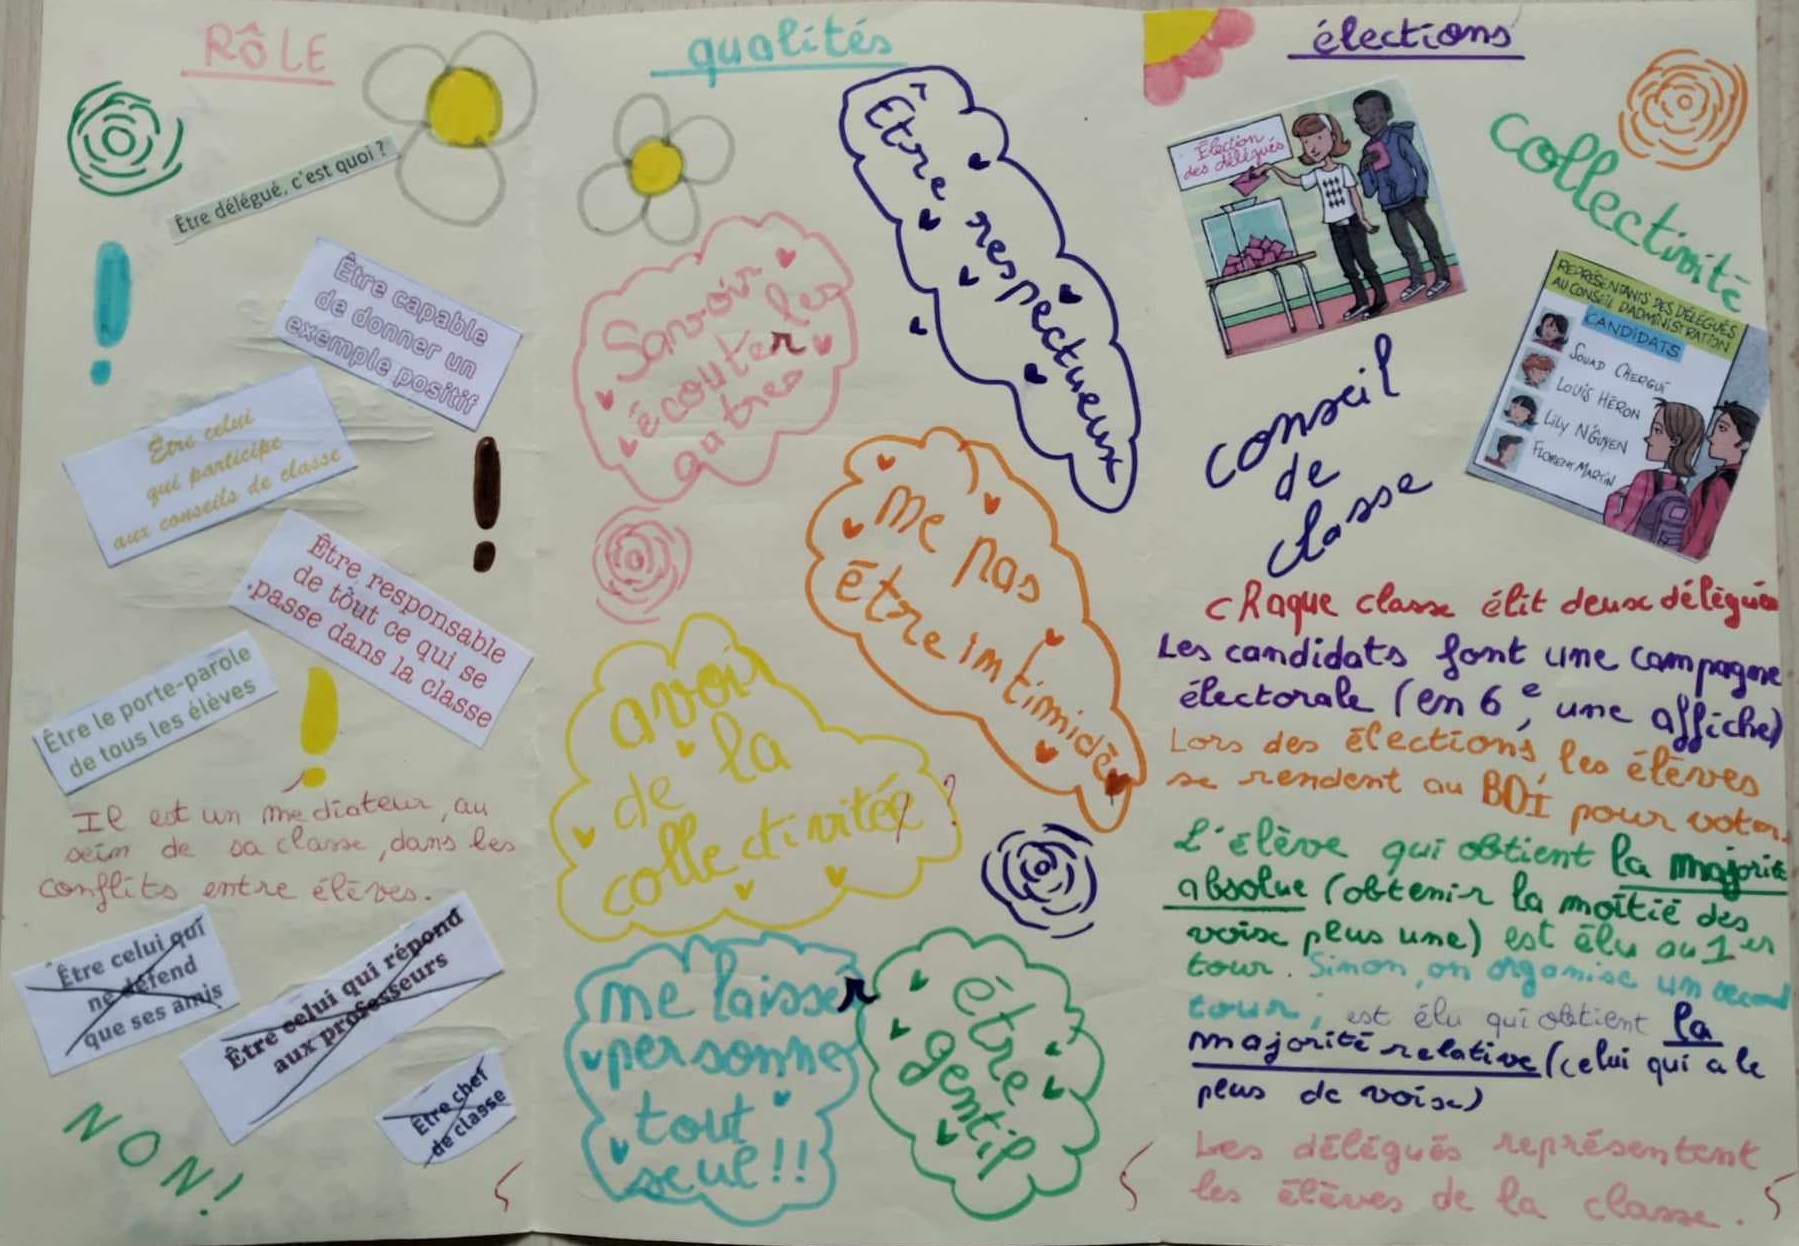 RÔLE
Être délégué, c'est quoi ?
Être capable
de donner un
exemple positif
Être celui
qui participe
aux conseils de classe
Être responsable
de tout ce qui se
passe dans la classe
Être le porte-parole
de tous les élèves
Il est un mediateur, au
sein de sa classe, dans les
conflits entre élèves.
Être celui qui
ne défend
que ses amis
Être celui qui répond
aux professeurs
Être chef
de classe
NON!
qualités
Être respectueux
Savoir
écouter les
autres
ne pas
être intimidé
avoir
de la
collectivitée ?
ne laisser
personne
tout
seul!!
être
gentil
élections
Élection
des délégués
collectivité
REPRÉSENTANTS DES DÉLÉGUÉS
AU CONSEIL D'ADMINISTRATION
CANDIDATS
SOUAD CHERGUI
LOUIS HÉRON
LILY N'GUYEN
FLORENT MARTIN
conseil
de
classe
chaque classe élit deux délégués
Les candidats font une campagne
électorale (en 6e, une affiche)
Lors des élections, les élèves
se rendent au BDI pour voter.
L'élève qui obtient la majorité
absolue (obtenir la moitié des
voix plus une) est élu au 1er
tour. Sinon, on organise un second
tour; est élu qui obtient la
majorité relative (celui qui a le
plus de voix)
Les délégués représentent
les élèves de la classe.